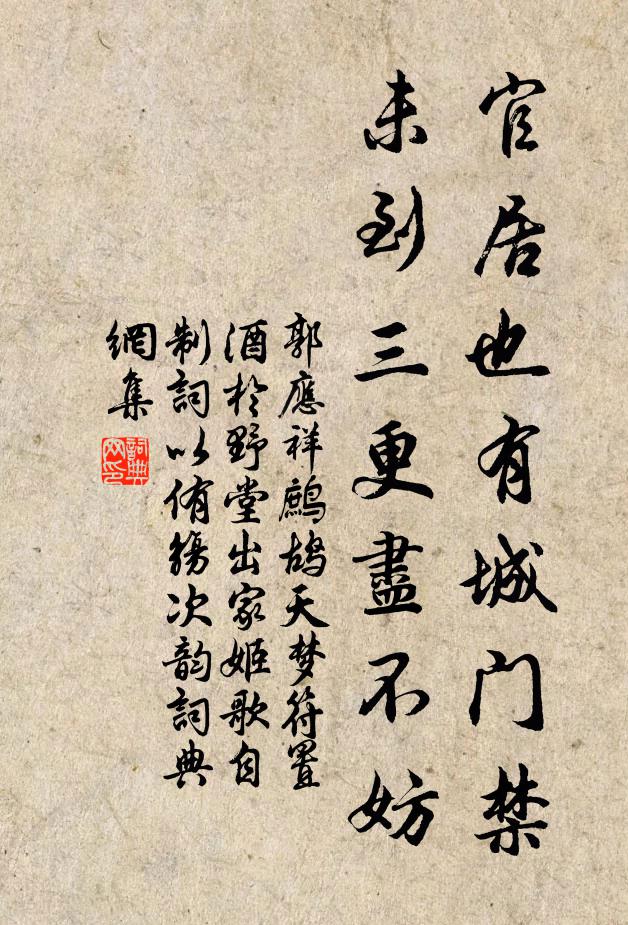 官居也有城门禁
未到三更盡不妨
郭應祥鷓鴣天梦符置
酒於野堂出家姬歌自
制詞以侑觴次韵詞典
網集
詞典网印